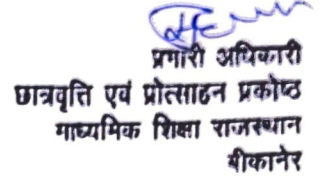 प्रभारी अधिकारी
छात्रवृत्ति एवं प्रोत्साहन प्रकोष्ठ
माध्यमिक शिक्षा राजस्थान
बीकानेर